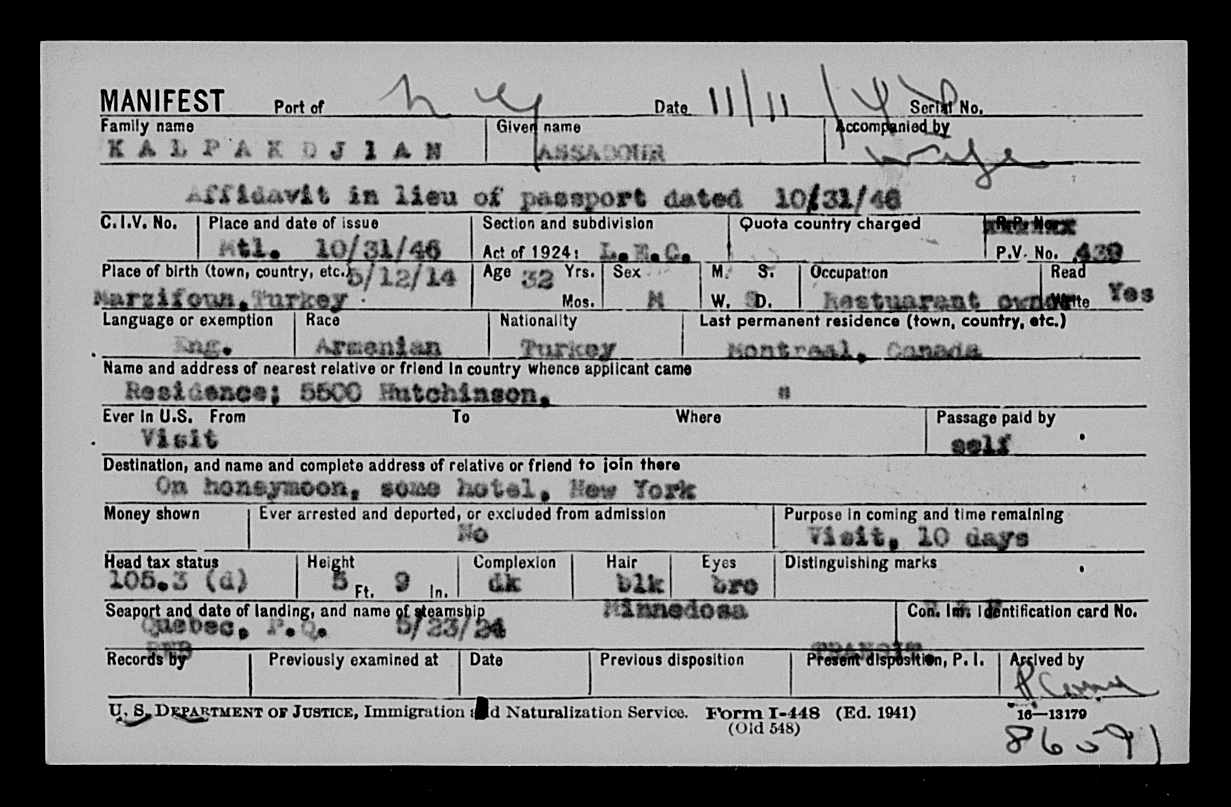 MANIFEST Port of N Y Date 11/11/46 Serial No.
Family name Given name Accompanied by
KALPAKDJIAN ASSADOUR wife
Affidavit in lieu of passport dated 10/31/46
C.I.V. No. Place and date of issue Section and subdivision Quota country charged
Mtl. 10/31/46 Act of 1924: L.E.C. P.V. No. 439
Place of birth (town, country, etc.) 5/12/14 Age 32 Yrs. Sex M. S. Occupation Read
Marzifoun, Turkey Mos. M W. D. Restuarant owner Write Yes
Language or exemption Race Nationality Last permanent residence (town, country, etc.)
Eng. Armenian Turkey Montreal, Canada
Name and address of nearest relative or friend in country whence applicant came
Residence; 5500 Hutchinson, "
Ever in U.S. From To Where Passage paid by
Visit self
Destination, and name and complete address of relative or friend to join there
On honeymoon, some hotel, New York
Money shown Ever arrested and deported, or excluded from admission Purpose in coming and time remaining
No Visit, 10 days
Head tax status Height Complexion Hair Eyes Distinguishing marks
105.3 (d) 5 Ft. 9 In. dk blk bro
Seaport and date of landing, and name of steamship Minnedosa Con. Im. Identification card No.
Quebec, P.Q. 5/23/24
TRANSIT
Records by Previously examined at Date Previous disposition Present disposition, P. I. Arrived by
U. S. DEPARTMENT OF JUSTICE, Immigration and Naturalization Service. Form I-448 (Ed. 1941) 16—13179
(Old 548)
86591